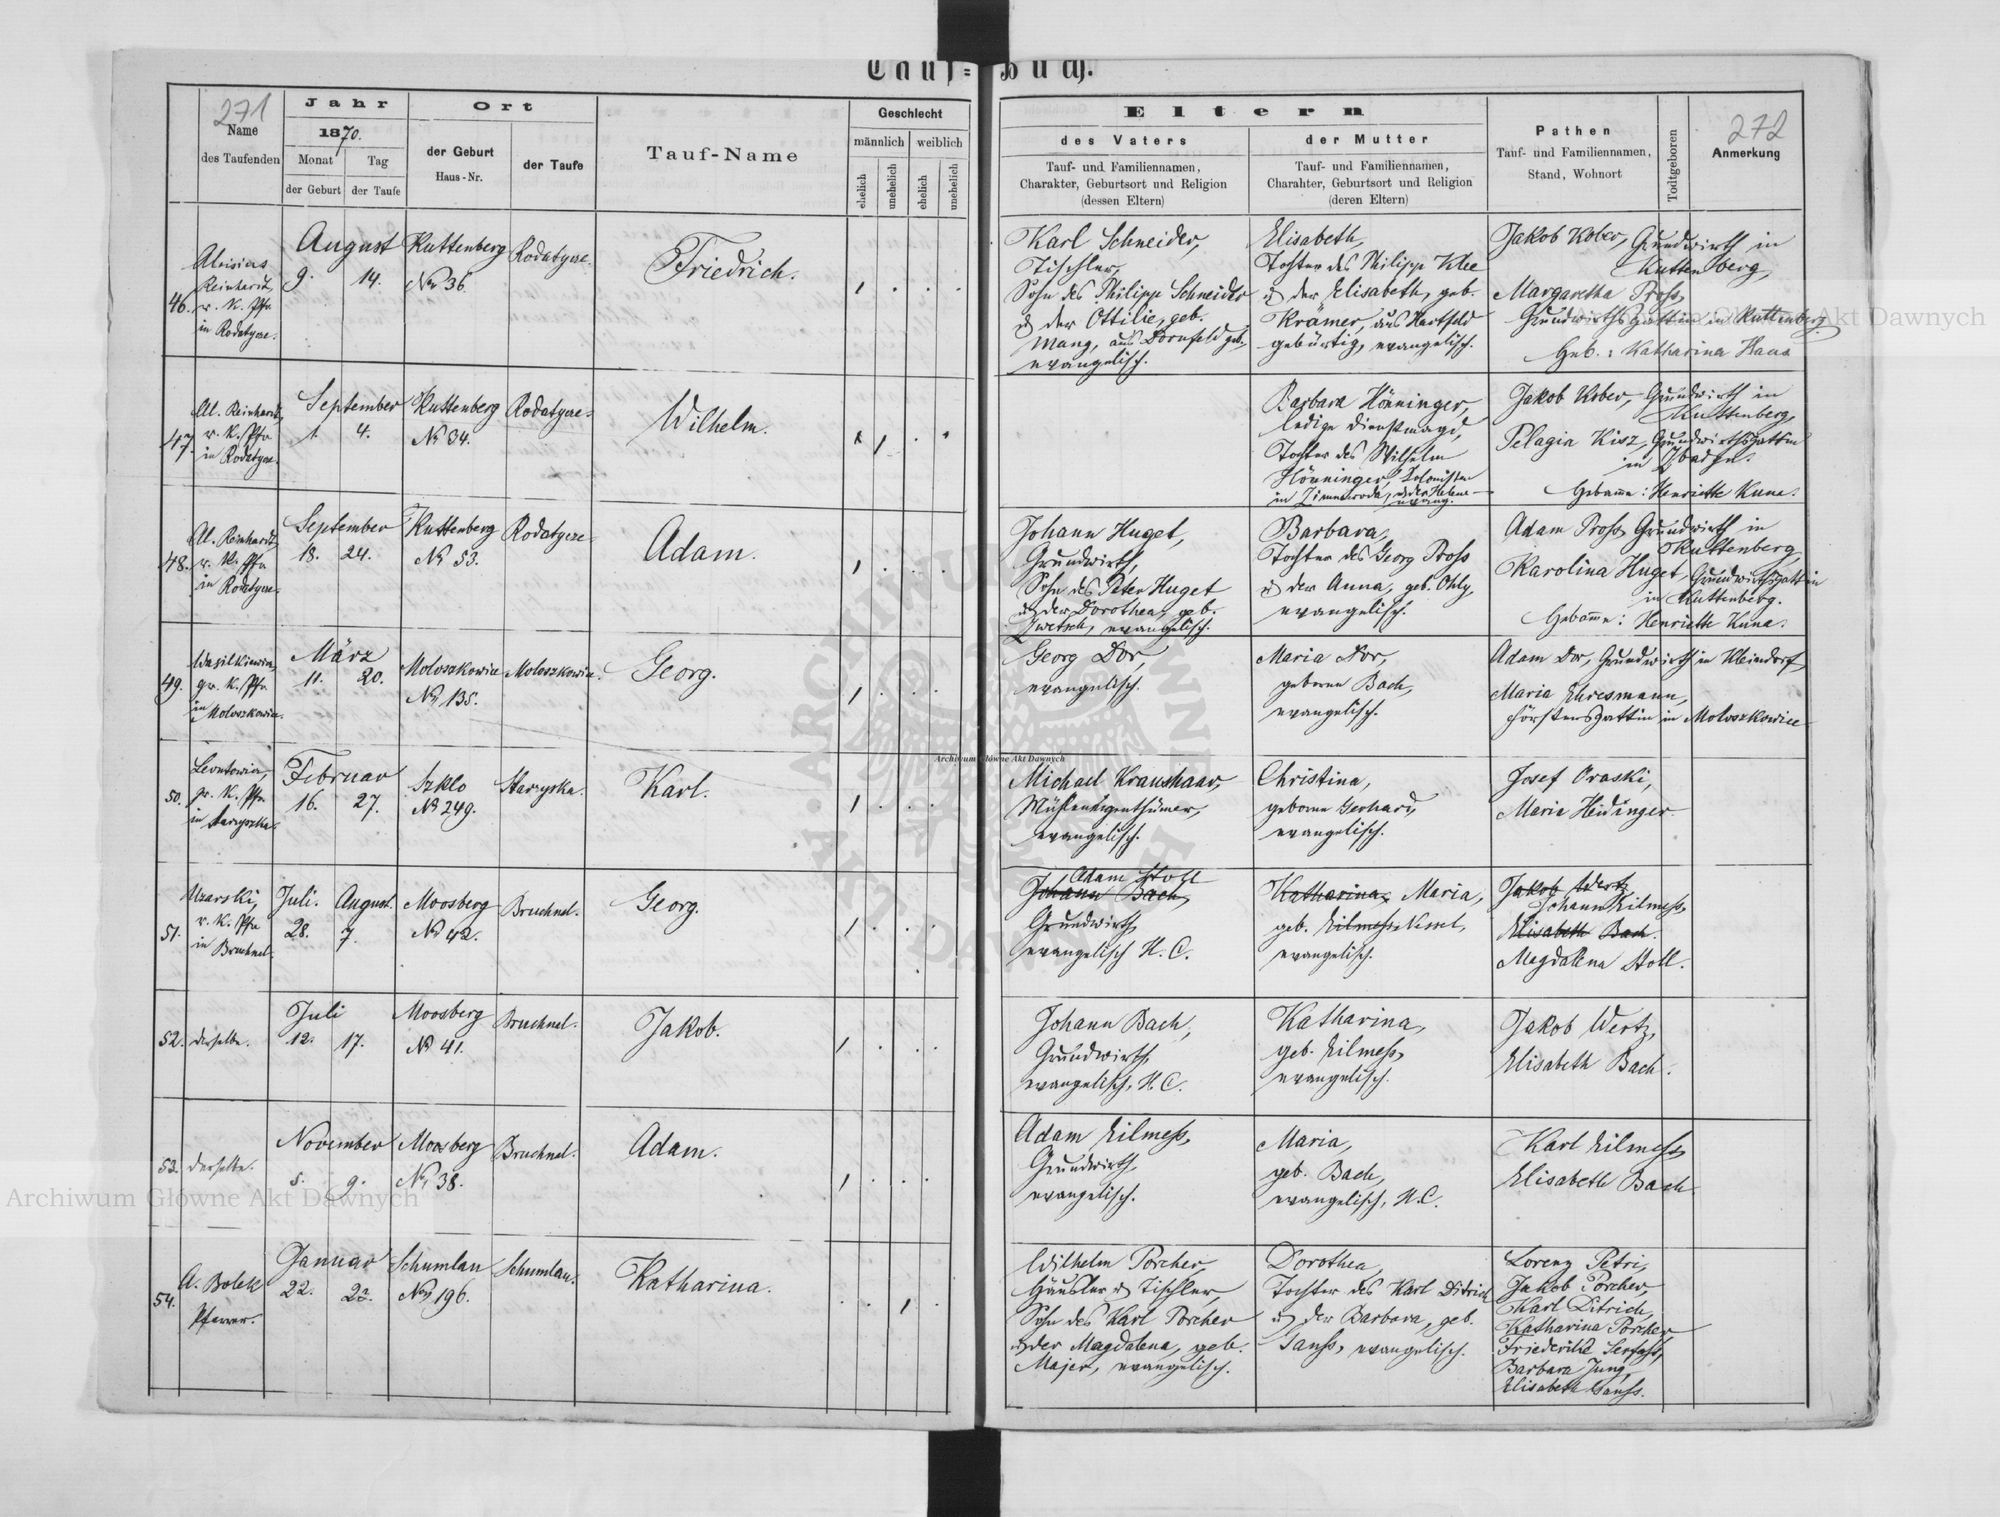 Tauf=Buch.
271
Name
des Taufenden
Jahr
1870.
Monat
Tag
der Geburt
der Taufe
Ort
der Geburt
Haus-Nr.
der Taufe
Tauf-Name
Geschlecht
männlich
weiblich
ehelich
unehelich
ehelich
unehelich
Eltern
des Vaters
Tauf- und Familiennamen,
Charakter, Geburtsort und Religion
(dessen Eltern)
der Mutter
Tauf- und Familiennamen,
Charahter, Geburtsort und Religion
(deren Eltern)
Pathen
Tauf- und Familiennamen,
Stand, Wohnort
Todtgeboren
272
Anmerkung
46.
Aloisius
Reinhardt,
r. k. Pfr
in Rodatycze.
August
9. 14.
Kuttenberg
No 36.
Rodatycze.
Friedrich.
Karl Schneider,
Tischler,
Sohn des Philipp Schneider
u. der Ottilie, geb.
Mang, aus Dornfeld geb.,
evangelisch.
Elisabeth,
Tochter des Philipp Klee
u. der Elisabeth, geb.
Krämer, aus Hartfeld
gebürtig, evangelisch.
Jakob Kober, Grundwirth in
Kuttenberg,
Margaretha Pross,
Grundwirthsgattin in Kuttenberg
Heb.: Katharina Haas
47.
Al. Reinhardt,
r. k. Pfr
in Rodatycze.
September
1. 4.
Kuttenberg
No 34.
Rodatycze.
Wilhelm.
Barbara Hönninger,
ledige Dienstmagd,
Tochter des Wilhelm
Hönninger, Kolonisten
in Zimnawoda, u. der Helene
evang.
Jakob Kober, Grundwirth in
Kuttenberg,
Pelagia Kisz, Grundwirthsgattin
in
Hebamme: Henriette Kuna.
48.
Al. Reinhardt,
r. k. Pfr
in Rodatycze.
September
18. 24.
Kuttenberg
No 53.
Rodatycze.
Adam.
Johann Huget,
Grundwirth,
Sohn des Peter Huget
u. der Dorothea, geb.
Zwetsch, evangelisch.
Barbara,
Tochter des Georg Pross
u. der Anna, geb. Ohly,
evangelisch.
Adam Pross, Grundwirth in
Kuttenberg,
Karolina Huget, Grundwirthsgattin
in Kuttenberg.
Hebamme: Henriette Kuna.
49.
Wasilkiewicz,
gr. k. Pfr
in Moloszkowice.
März
11. 20.
Moloszkowice
No 135.
Moloszkowice.
Georg.
Georg Dor,
evangelisch.
Maria Dor,
geborene Bach,
evangelisch.
Adam Dor, Grundwirth in Kleindorf,
Maria Ehresmann,
Förstersgattin in Moloszkowice
50.
Leontowicz,
gr. k. Pfr
in Starzyska.
Februar
16. 27.
Szklo
No 249.
Starzyska.
Karl.
Michael Kraushaar,
Mühleneigenthümer,
evangelisch.
Christina,
geborene Gerhard,
evangelisch.
Josef Oraski,
Maria Heidinger
51.
Uzarski,
r. k. Pfr
in Bruchnal.
Juli. August.
28. 7.
Moosberg
No 42.
Bruchnal.
Georg.
Adam Stoll
Johann Bach,
Grundwirth,
evangelisch H. C.
Katharina, Maria,
geb. Eilmess, Nessel,
evangelisch.
Jakob Wertz
Johann Eilmess,
Elisabeth Bach.
Magdalena Stoll.
52.
derselbe.
Juli
12. 17.
Moosberg
No 41.
Bruchnal.
Jakob.
Johann Bach,
Grundwirth,
evangelisch, H. C.
Katharina,
geb. Eilmess,
evangelisch.
Jakob Wertz,
Elisabeth Bach.
53.
derselbe.
November
5. 9.
Moosberg
No 38.
Bruchnal.
Adam.
Adam Eilmess,
Grundwirth,
evangelisch.
Maria,
geb. Bach,
evangelisch, H. C.
Karl Eilmess,
Elisabeth Bach
54.
A. Bolek
Pfarrer.
Januar
22. 23.
Schumlau
No 196.
Schumlau.
Katharina.
Wilhelm Porcher,
Häusler u. Tischler
Sohn des Karl Porcher
u. der Magdalena, geb.
Majer, evangelisch.
Dorothea,
Tochter des Karl Ditrich
u. der Barbara, geb.
Ganss, evangelisch.
Lorenz Petri,
Jakob Porcher,
Karl Ditrich,
Katharina Porcher
Friederika Serfass,
Barbara Jung,
Elisabeth Ganss.
Archiwum Główne Akt Dawnych
Archiwum Główne Akt Dawnych
Archiwum Główne Akt Dawnych